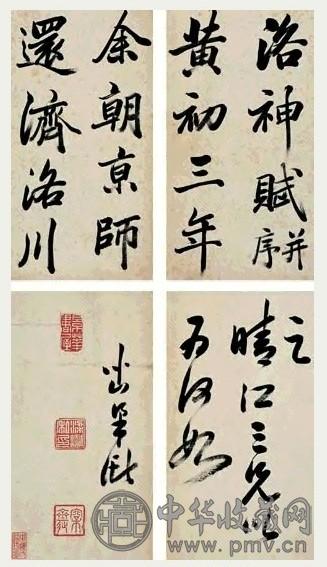 洛神賦并序
黄初三年
余朝京師
還濟洛川
之
晴江三兄以
为何如
中华收藏网
www.pmv.cn